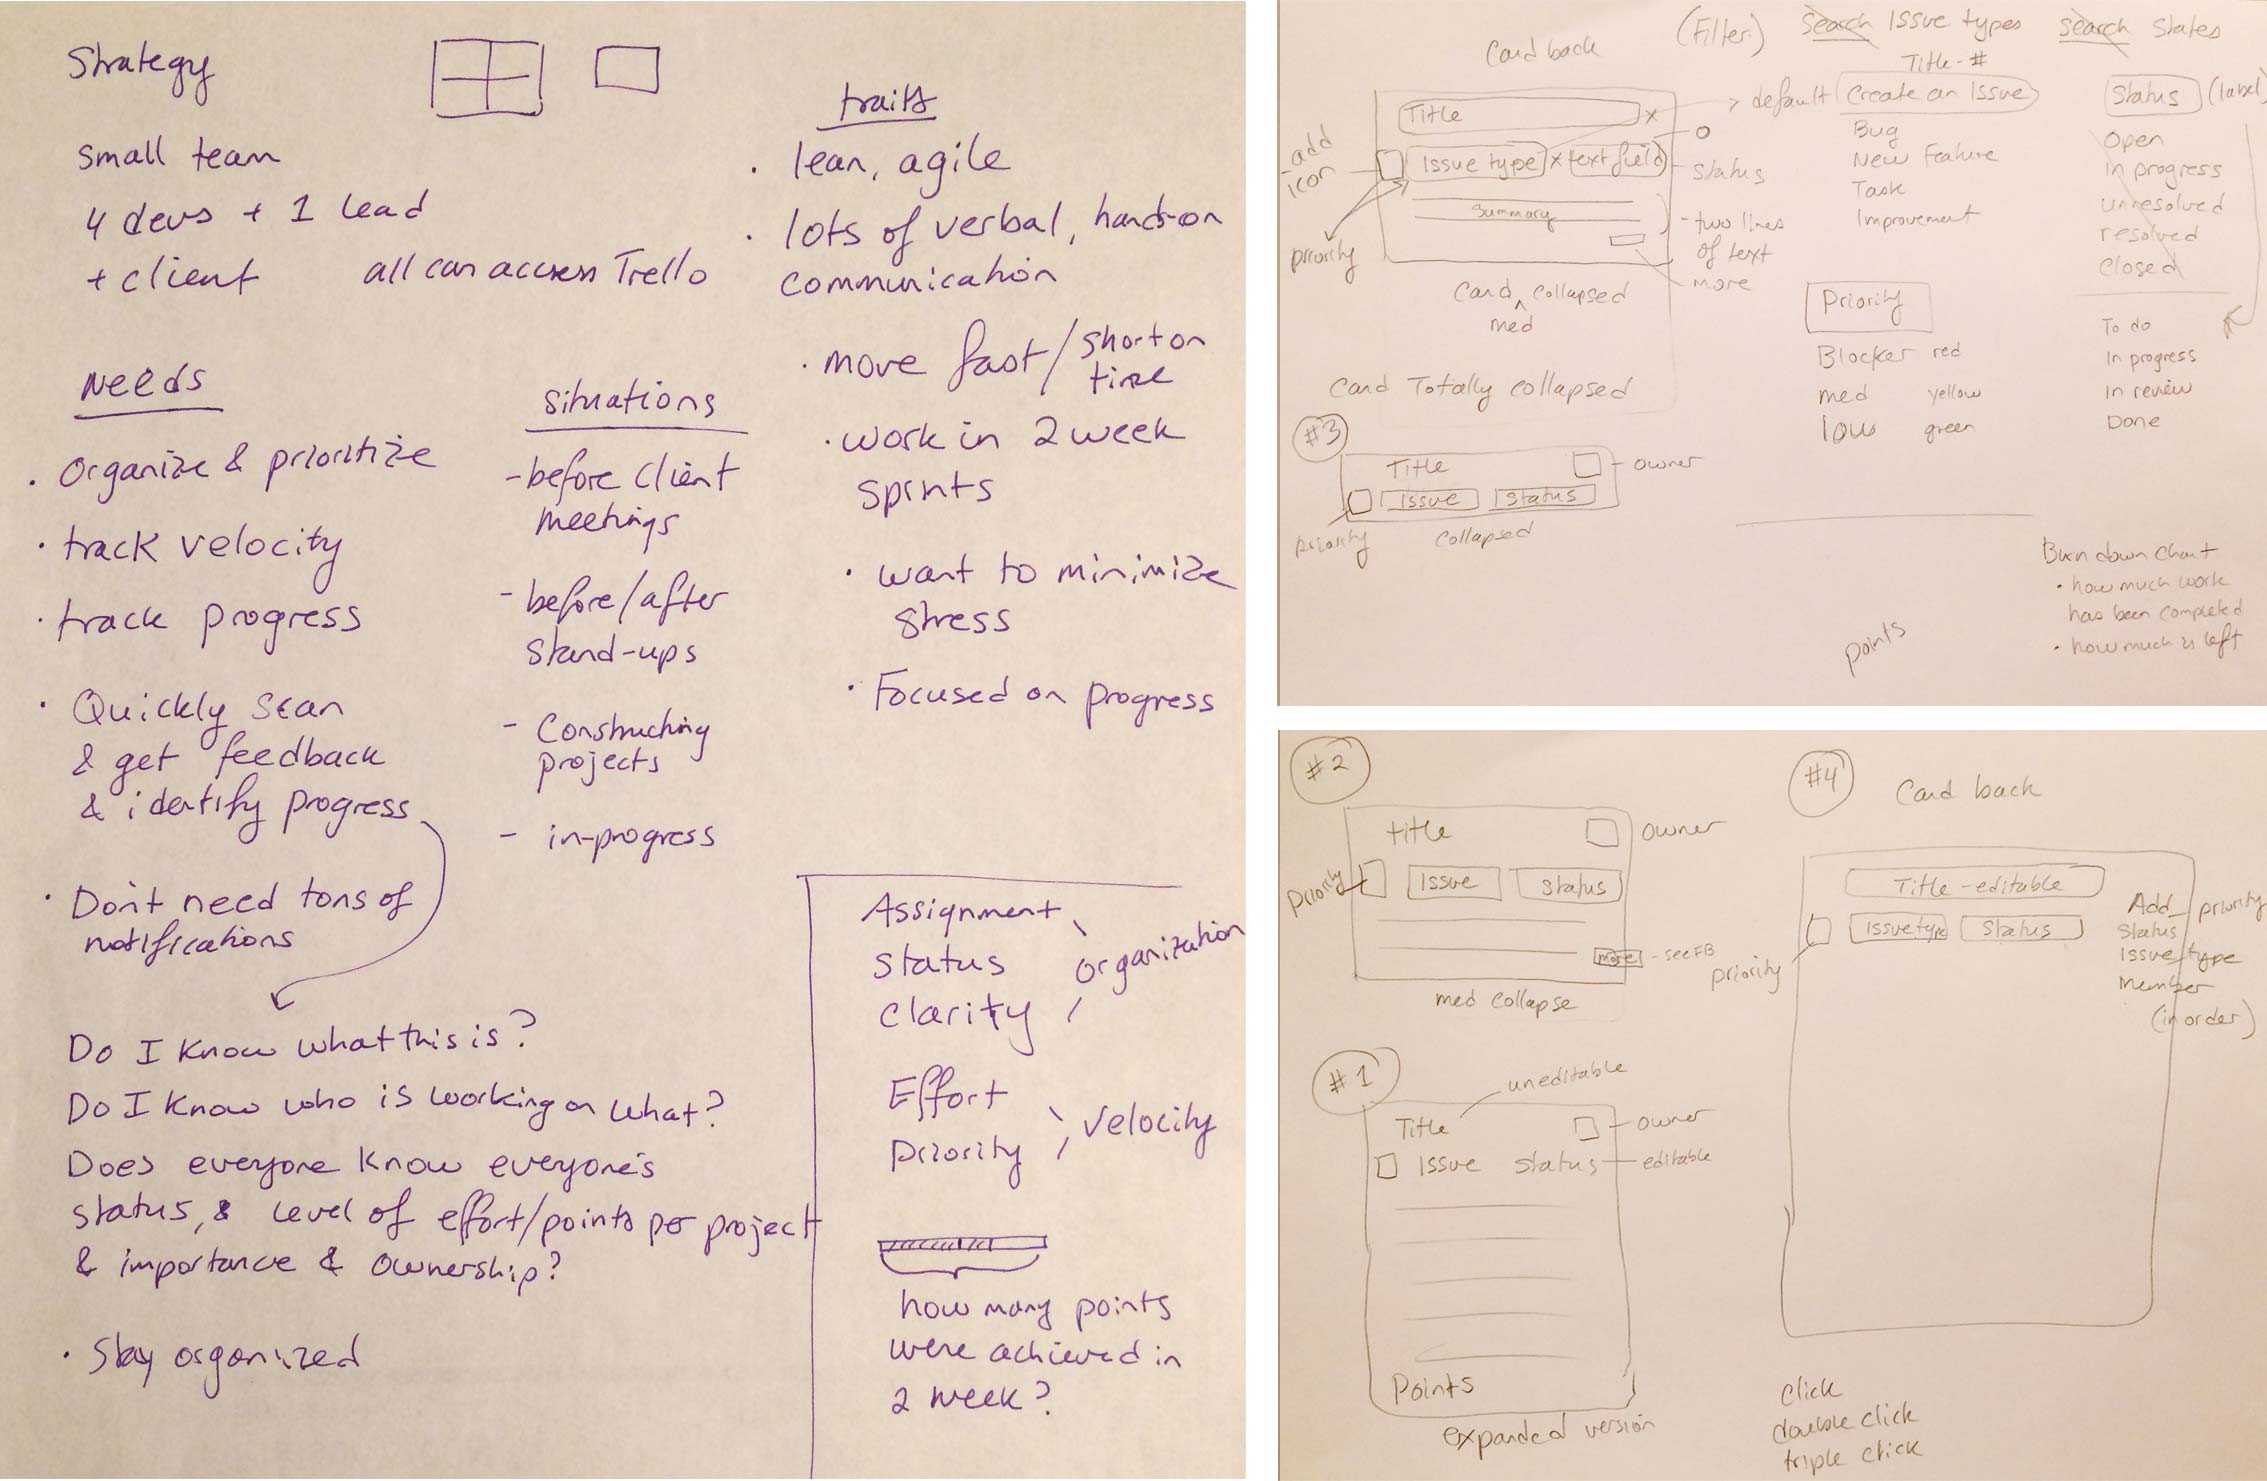 Strategy
small team
4 devs + 1 lead
+ client
all can access Trello
Needs
· Organize & prioritize
· track velocity
· track progress
· Quickly scan
& get feedback
& identify progress
· Don't need tons of
notifications
Do I know what this is?
Do I know who is working on what?
Does everyone know everyone's
status, & level of effort/points per project
& importance & ownership?
· Stay organized
situations
- before client
meetings
- before/after
stand-ups
- Constructing
projects
- in-progress
traits
· lean, agile
· lots of verbal, hands-on
communication
· move fast / short on
time
· work in 2 week
sprints
· want to minimize
stress
· Focused on progress
Assignment
Status
Clarity
organization
Effort
Priority
velocity
how many points
were achieved in
2 week?
Card back
Title x
Issue type x text field
Summary
- add
icon
priority
status
- two lines
of text
- more
Card collapsed
med
Card Totally collapsed
#3
Title
owner
Issue Status
priority
Collapsed
(Filter)
Search Issue types
Title - #
default Create an Issue
Bug
New Feature
Task
Improvement
Search States
Status (label)
Open
In progress
unresolved
resolved
Closed
To do
In progress
In review
Done
Priority
Blocker red
med yellow
low green
Burn down chart
· how much work
has been completed
· how much is left
points
#2
title
owner
Priority
Issue Status
more - see FB
med collapse
#1
uneditable
Title
owner
Issue Status editable
Points
expanded version
#4
Card back
Title - editable
Issue type Status
priority
Add priority
Status
Issue type
member
(in order)
click
double click
triple click